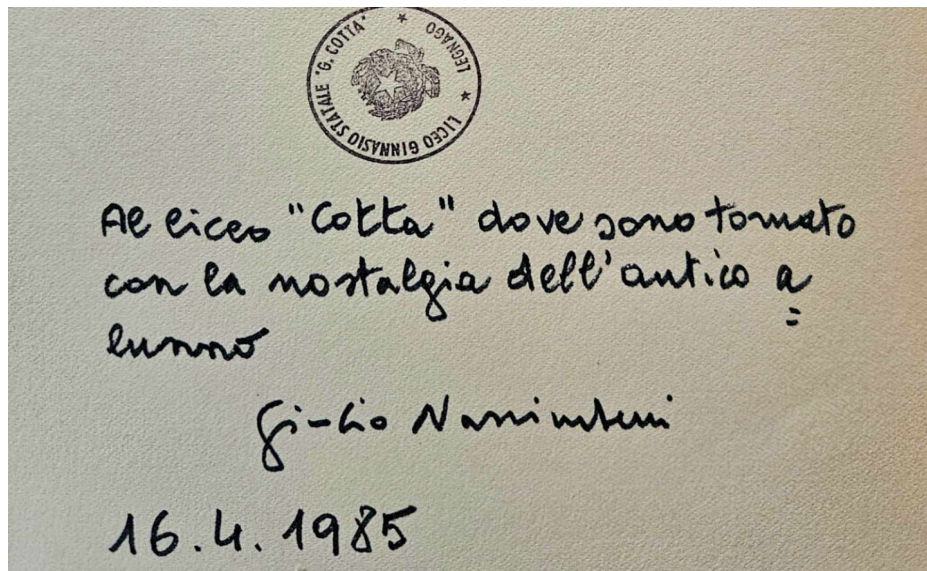 LICEO GINNASIO STATALE "G. COTTA" * LEGNAGO *
Al liceo "Cotta" dove sono tornato
con la nostalgia dell'antico a
lunno
Giulio Nascimbeni
16.4.1985